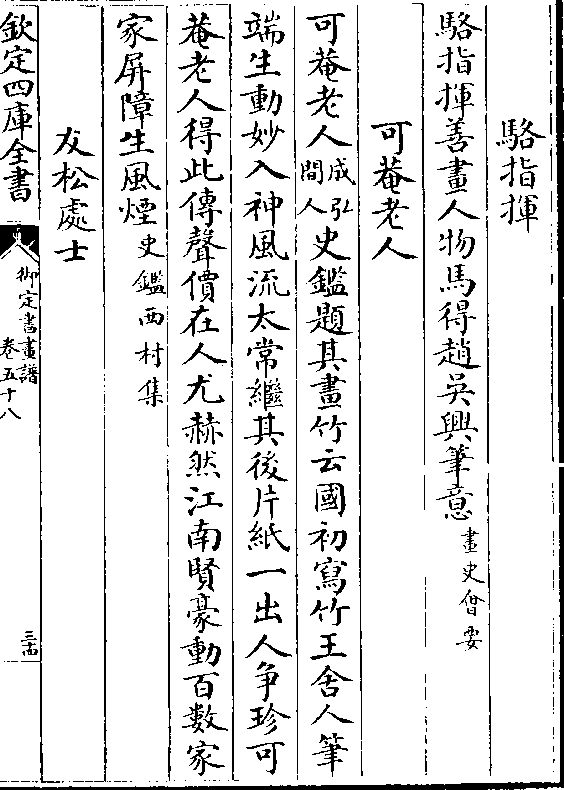 駱指揮
駱指揮善畫人物馬得趙吳興筆意畫史會要
可菴老人
可菴老人成弘間人史鑑題其畫竹云國初寫竹王舍人筆
端生動妙入神風流太常繼其後片紙一出人争珍可
菴老人得此傳聲價在人尤赫然江南賢豪動百數家
家屏障生風煙史鑑西村集
友松處士
欽定四庫全書
御定書畫譜
卷五十八
三十四